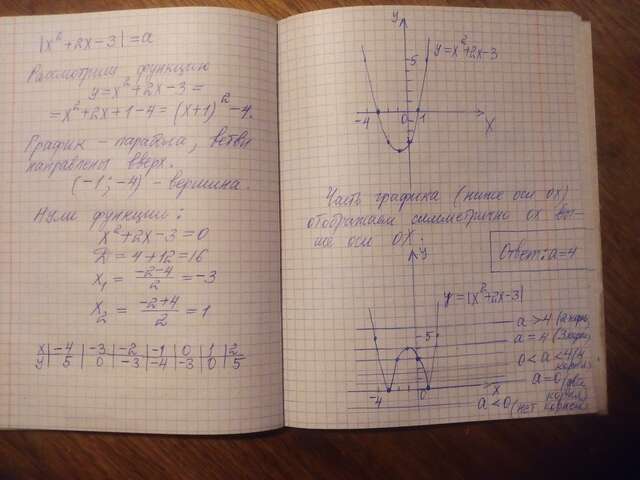 |x² + 2x - 3| = a
Рассмотрим функцию
y = x² + 2x - 3 =
= x² + 2x + 1 - 4 = (x+1)² - 4.
График - парабола, ветви
направлены вверх.
(-1; -4) - вершина.
Нули функции:
x² + 2x - 3 = 0
D = 4 + 12 = 16
x₁ = (-2-4)/2 = -3
x₂ = (-2+4)/2 = 1
x | -4 | -3 | -2 | -1 | 0 | 1 | 2
y | 5 | 0 | -3 | -4 | -3 | 0 | 5
y
y = x² + 2x - 3
5
-4 0 1
x
Часть графика (ниже оси OX)
отображаем симметрично OX вы-
ше оси OX.
Ответ: a = 4
y
y = |x² + 2x - 3|
5
-4 0
x
a > 4 (2
a = 4 (3
0 < a < 4 (4
корня)
a = 0 (два
корня)
a < 0 (нет корней)